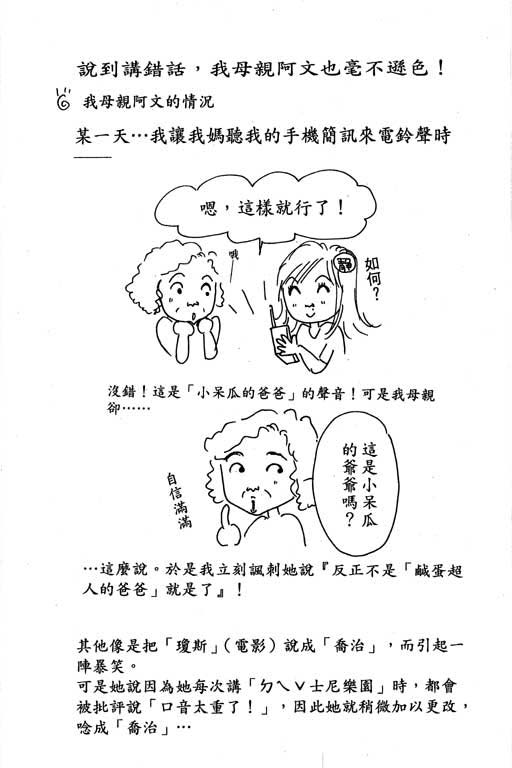 說到講錯話，我母親阿文也毫不遜色！
我母親阿文的情況
某一天…我讓我媽聽我的手機簡訊來電鈴聲時
嗯，這樣就行了！
哦
如何？
沒錯！這是「小呆瓜的爸爸」的聲音！可是我母親
卻……
這是小呆瓜
的爺爺嗎？
自信滿滿
…這麼說。於是我立刻諷刺她說『反正不是「鹹蛋超
人的爸爸」就是了』！
其他像是把「瓊斯」（電影）說成「喬治」，而引起一
陣暴笑。
可是她說因為她每次講「ㄉㄟˇ士尼樂園」時，都會
被批評說「口音太重了！」，因此她就稍微加以更改，
唸成「喬治」…